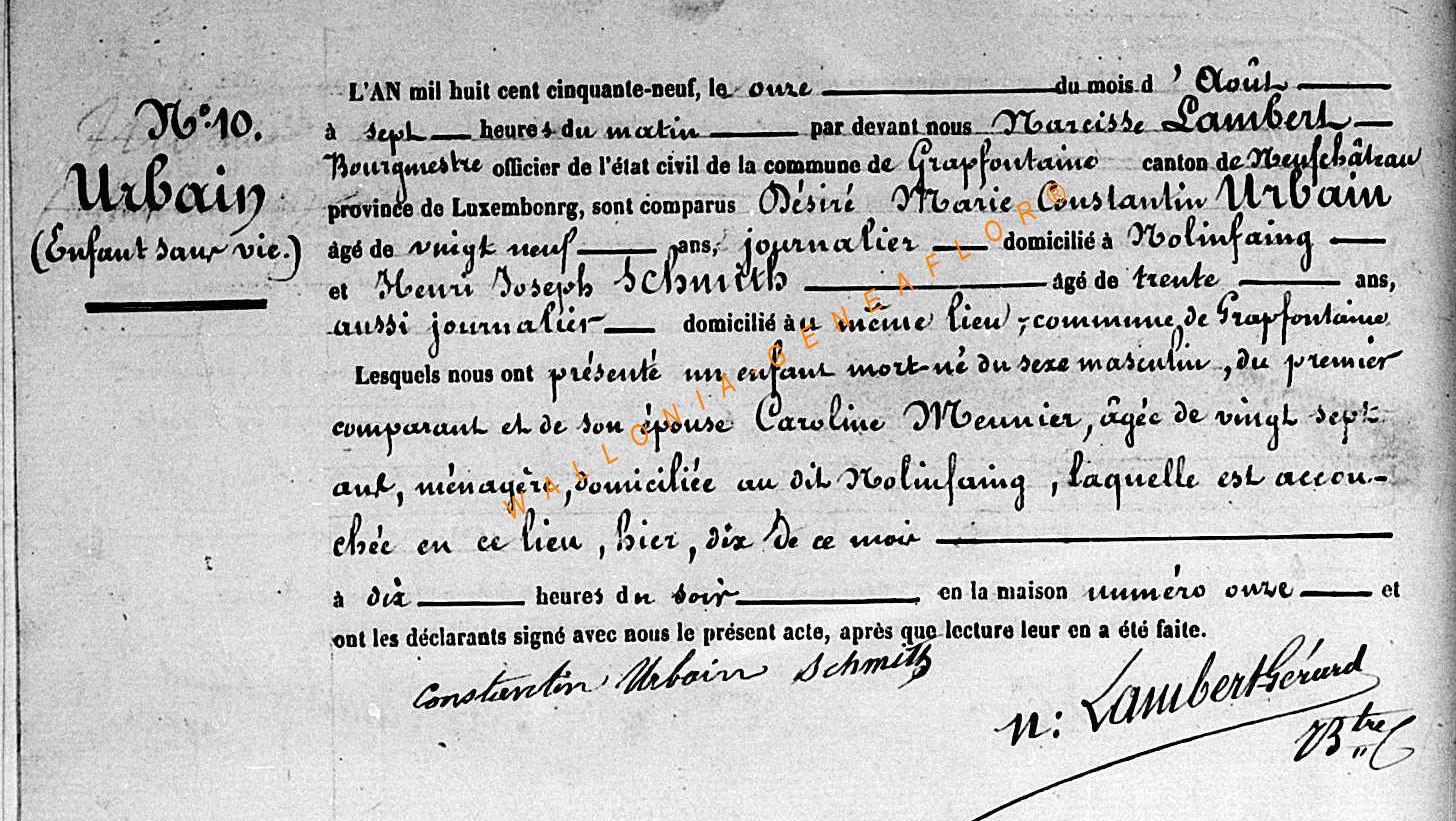 N° 10.
Urbain
(Enfant sans vie.)
L'AN mil huit cent cinquante-neuf, le onze du mois d'Août
à sept heures du matin par devant nous Narcisse Lambert
Bourgmestre officier de l'état civil de la commune de Grapfontaine canton de Neufchâteau
province de Luxembonrg, sont comparus Désiré Marie Constantin Urbain
âgé de vingt neuf ans, journalier domicilié à Nolinfaing
et Henri Joseph Schmith âgé de trente ans,
aussi journalier domicilié au même lieu, commune de Grapfontaine
Lesquels nous ont présenté un enfant mort-né du sexe masculin, du premier
comparant et de son épouse Caroline Meunier, âgée de vingt sept
ans, ménagère, domiciliée au dit Nolinfaing, laquelle est accou-
chée en ce lieu, hier, dix de ce mois
à dix heures du soir en la maison numéro onze et
ont les déclarants signé avec nous le présent acte, après que lecture leur en a été faite.
Constantin Urbain Schmith
n: Lambert Gérard
Btre
WALLONIA-GENEAFLOR®